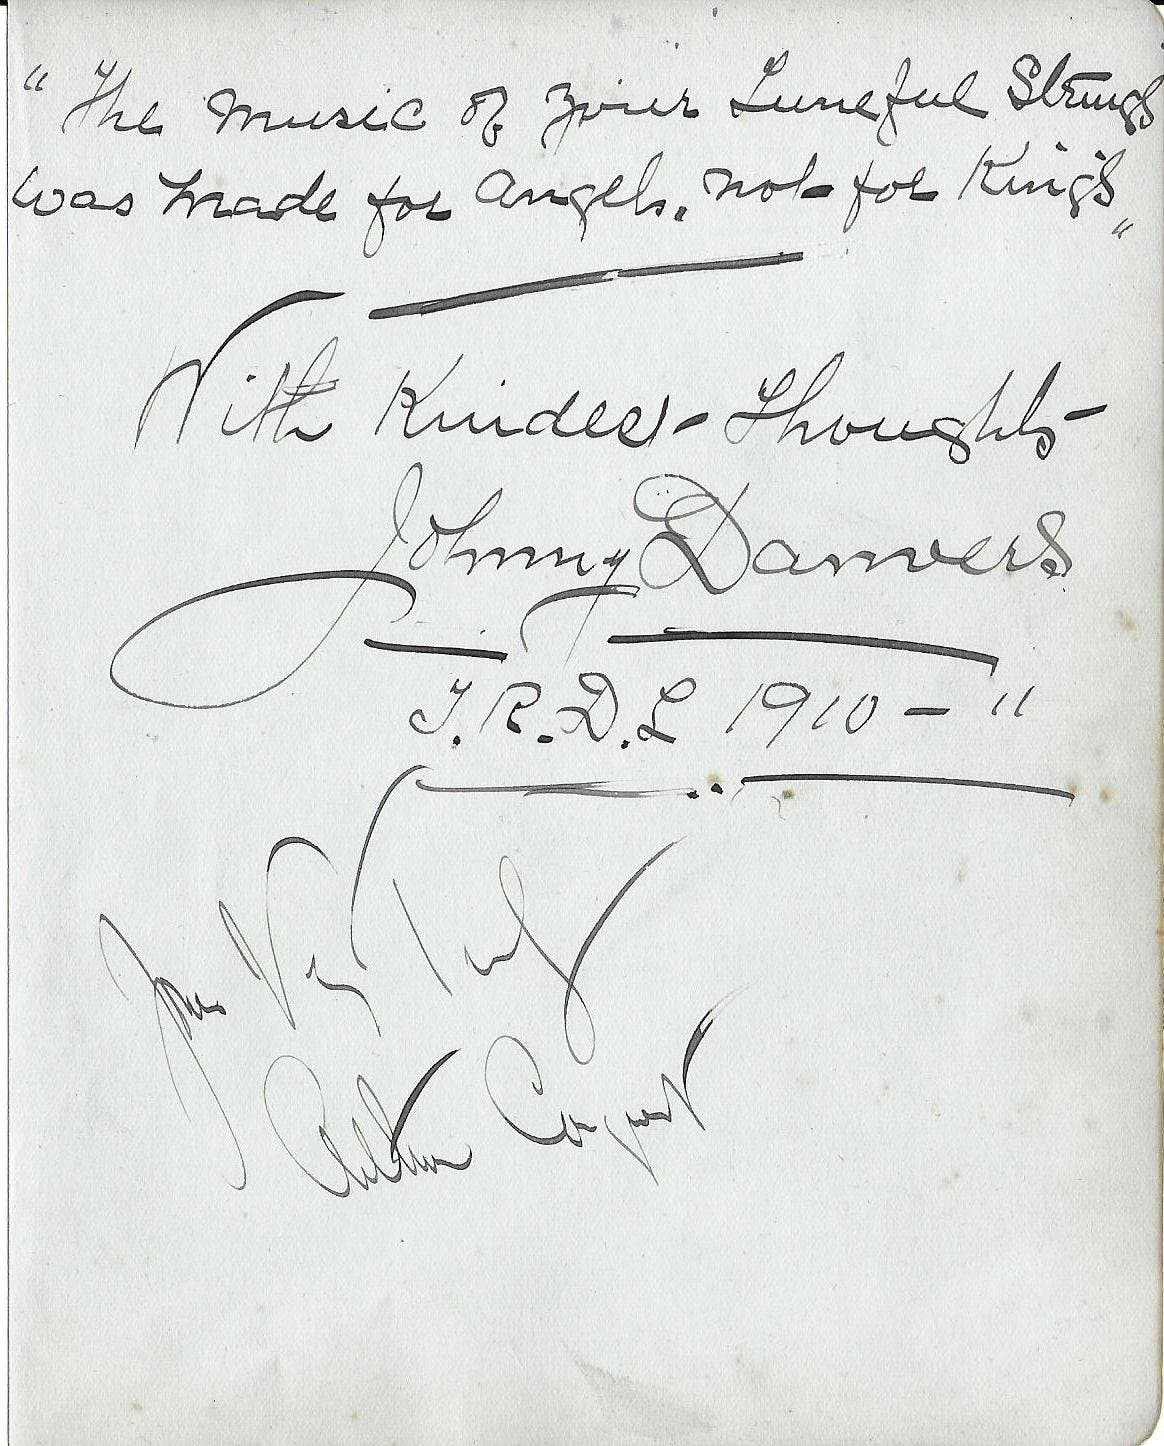 "The music of your Tuneful Strings
was made for angels. not for King's"
With Kindest Thoughts
Johnny Danvers
T.R.D.L 1910-11
Yours Very Truly
Arthur Conquest